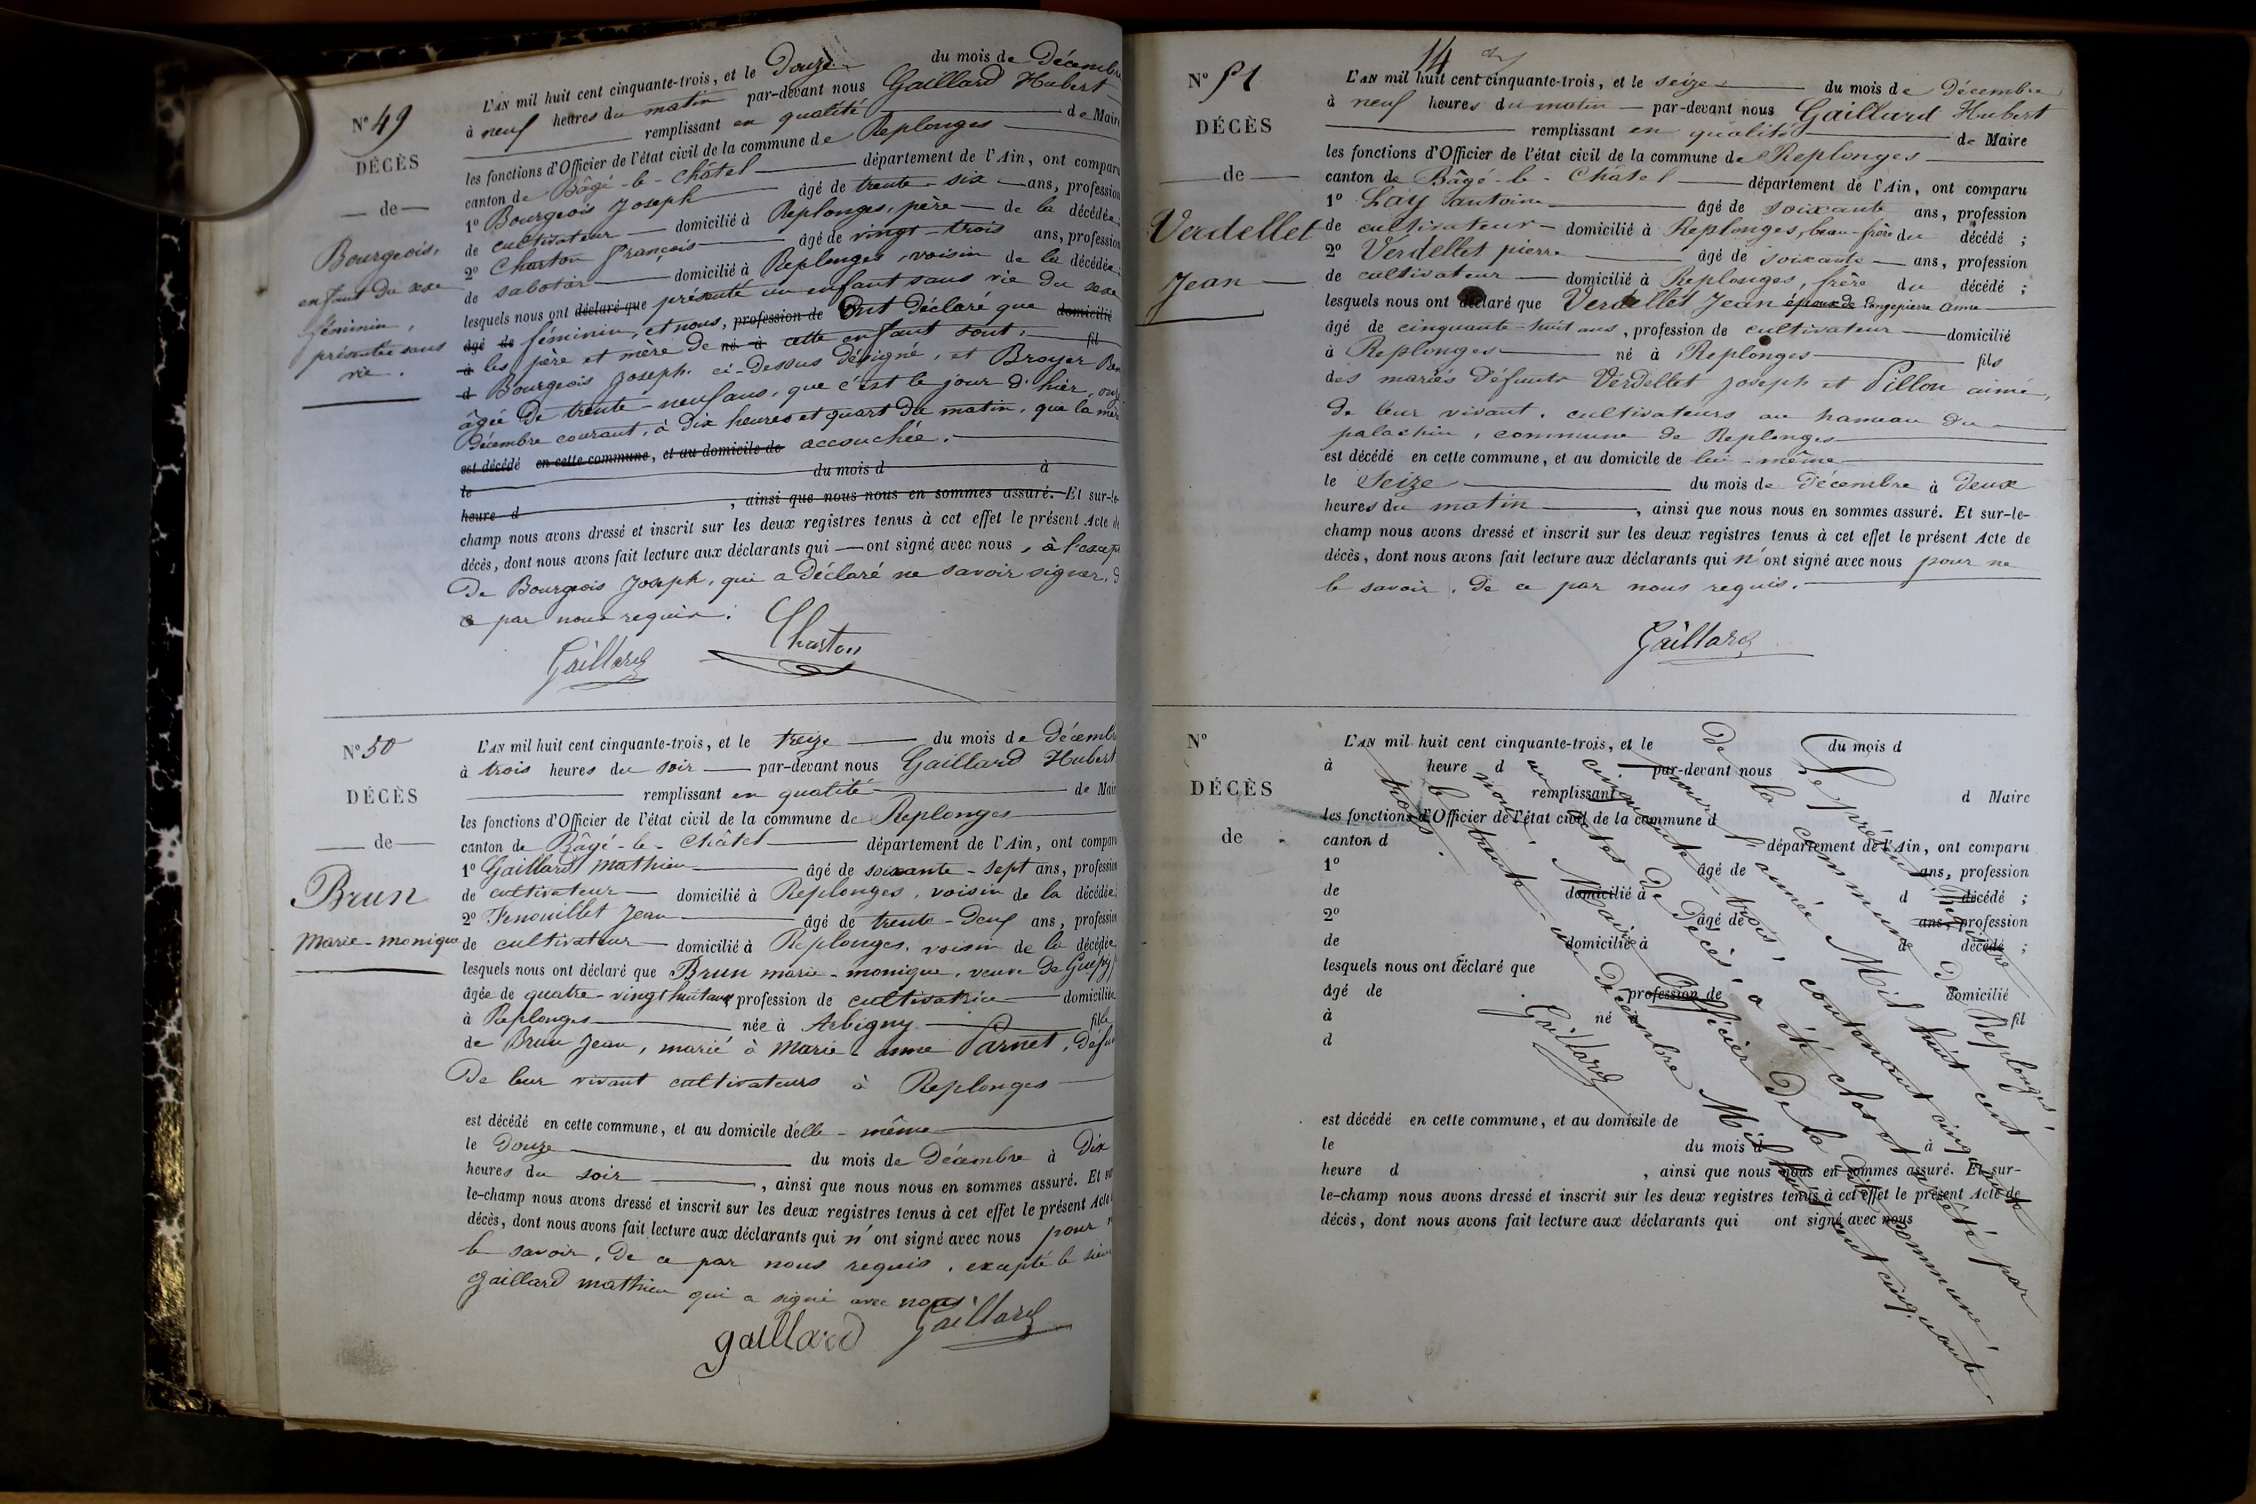 N° 49
DÉCÈS
de
Bourgeois,
enfant du sexe
féminin,
présentée sans
vie.
L'AN mil huit cent cinquante-trois, et le Douze du mois de Décembre
à neuf heures du matin par-devant nous Gaillard Hubert
remplissant en qualité de Maire
les fonctions d'Officier de l'état civil de la commune de Replonges
canton de Bâgé-le-Châtel département de l'Ain, ont comparu
1° Bourgeois Joseph âgé de trente-six ans, profession
de cultivateur domicilié à Replonges, père de la décédée;
2° Charton François âgé de vingt-trois ans, profession
de sabotier domicilié à Replonges, voisin de la décédée;
lesquels nous ont déclaré que présenté un enfant sans vie du sexe
âgé de féminin, et nous, profession de Ont déclaré que domicilié
à les père et mère de né à cette enfant sont: fil
d Bourgeois Joseph, ci-dessus désigné, et Broyer
âgée de trente-neuf ans, que c'est le jour d'hier, onze
Décembre courant, à dix heures et quart du matin, que la mère
est décédé en cette commune, et au domicile de accouchée.
le du mois d à
heure d , ainsi que nous nous en sommes assuré. Et sur-le-
champ nous avons dressé et inscrit sur les deux registres tenus à cet effet le présent Acte de
décès, dont nous avons fait lecture aux déclarants qui ont signé avec nous, à l'except
De Bourgeois Joseph, qui a déclaré ne savoir signer, d
ce par nous requis.
Gaillard Charton
N° 50
DÉCÈS
de
Brun
Marie-monique
L'AN mil huit cent cinquante-trois, et le treize du mois de Décembre
à trois heures du soir par-devant nous Gaillard Hubert
remplissant en qualité de Maire
les fonctions d'Officier de l'état civil de la commune de Replonges
canton de Bâgé-le-Châtel département de l'Ain, ont comparu
1° Gaillard Mathieu âgé de soixante-sept ans, profession
de cultivateur domicilié à Replonges, voisin de la décédée;
2° Fenouillet Jean âgé de trente-deux ans, profession
de cultivateur domicilié à Replonges, voisin de la décédée
lesquels nous ont déclaré que Brun marie-monique, veuve De
âgée de quatre-vingt huit ans profession de cultivatrice domiciliée
à Replonges née à Arbigny fille
de Brun Jean, marié à Marie-anne Parnet,
De leur vivant cultivateurs à Replonges
est décédé en cette commune, et au domicile d'elle-même
le Douze du mois de Décembre à Dix
heures du soir , ainsi que nous nous en sommes assuré. Et sur-
le-champ nous avons dressé et inscrit sur les deux registres tenus à cet effet le présent Acte
décès, dont nous avons fait lecture aux déclarants qui n'ont signé avec nous pour
le savoir, De ce par nous requis, excepté le sieur
Gaillard mathieu qui a signé avec nous.
gaillard Gaillard
14
N° 51
DÉCÈS
de
Verdellet
Jean
L'AN mil huit cent cinquante-trois, et le seize du mois de Décembre
à neuf heures du matin par-devant nous Gaillard Hubert
remplissant en qualité de Maire
les fonctions d'Officier de l'état civil de la commune de Replonges
canton de Bâgé-le-Châtel département de l'Ain, ont comparu
1° Lay antoine âgé de soixante ans, profession
de cultivateur domicilié à Replonges, beau-frère du décédé;
2° Verdellet pierre âgé de soixante ans, profession
de cultivateur domicilié à Replonges, frère du décédé;
lesquels nous ont déclaré que Verdellet Jean époux de Longepierre anne
âgé de cinquante-huit ans, profession de cultivateur domicilié
à Replonges né à Replonges fils
des mariés défunts Verdellet Joseph et Pillon aimé,
de leur vivant, cultivateurs au hameau du
palachin, commune de Replonges
est décédé en cette commune, et au domicile de lui-même
le Seize du mois de Décembre à Deux
heures du matin , ainsi que nous nous en sommes assuré. Et sur-le-
champ nous avons dressé et inscrit sur les deux registres tenus à cet effet le présent Acte de
décès, dont nous avons fait lecture aux déclarants qui n'ont signé avec nous pour ne
le savoir, de ce par nous requis.
Gaillard
N°
DÉCÈS
de
L'AN mil huit cent cinquante-trois, et le du mois d
à heure d par-devant nous
remplissant d Maire
les fonctions d'Officier de l'état civil de la commune d
canton d département de l'Ain, ont comparu
1° âgé de ans, profession
de domicilié à d décédé;
2° âgé de ans, profession
de domicilié à d décédé;
lesquels nous ont déclaré que
âgé de profession de domicilié
à né à fil
d
est décédé en cette commune, et au domicile de
le du mois d à
heure d , ainsi que nous nous en sommes assuré. Et sur-
le-champ nous avons dressé et inscrit sur les deux registres tenus à cet effet le présent Acte de
décès, dont nous avons fait lecture aux déclarants qui ont signé avec nous
Le présent Registre
De la commune De Replonges
pour l'année Mil huit cent
cinquante-trois, contenant cinquante
un actes De Décès, a été clos et arrêté par
nous, Maire Officier De la Dite commune,
le trente-un Décembre Mil huit cent cinquante
trois.
Gaillard